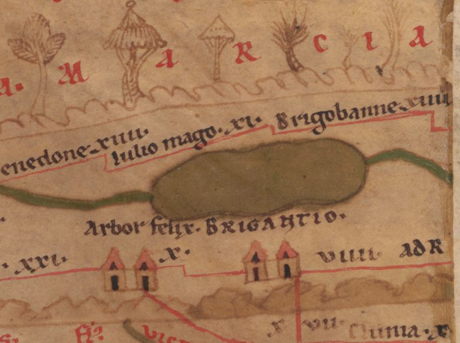 A. M A R C I A
enedone xiiii. Iulio mago. xi. Brigobanne xiiii
Arbor felix. BRIGANTIO.
. xxi. x. viiii ADR
x vii. Clunia. x